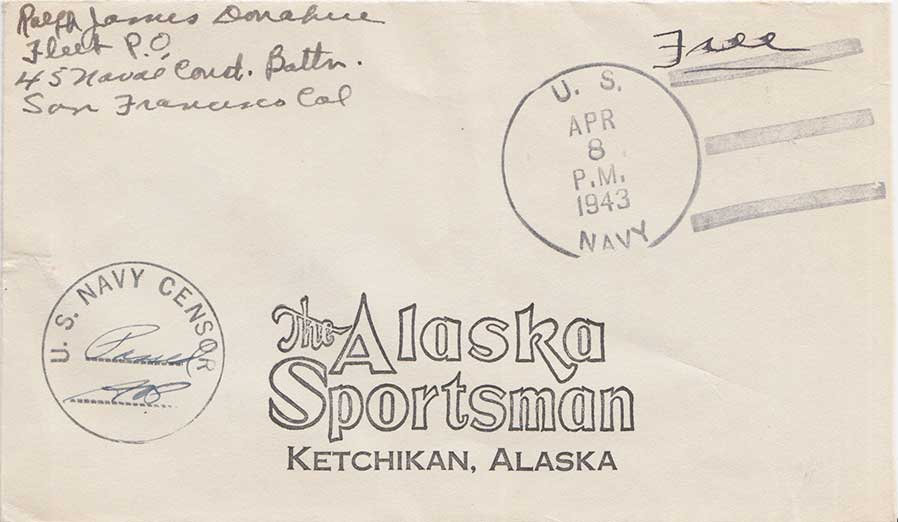 Ralph James Donahue
Fleet P.O.
45 Naval Const. Battn.
San Francisco Cal
Free
U. S.
APR
8
P.M.
1943
NAVY
U. S. NAVY CENSOR
Passed
The Alaska
Sportsman
KETCHIKAN, ALASKA